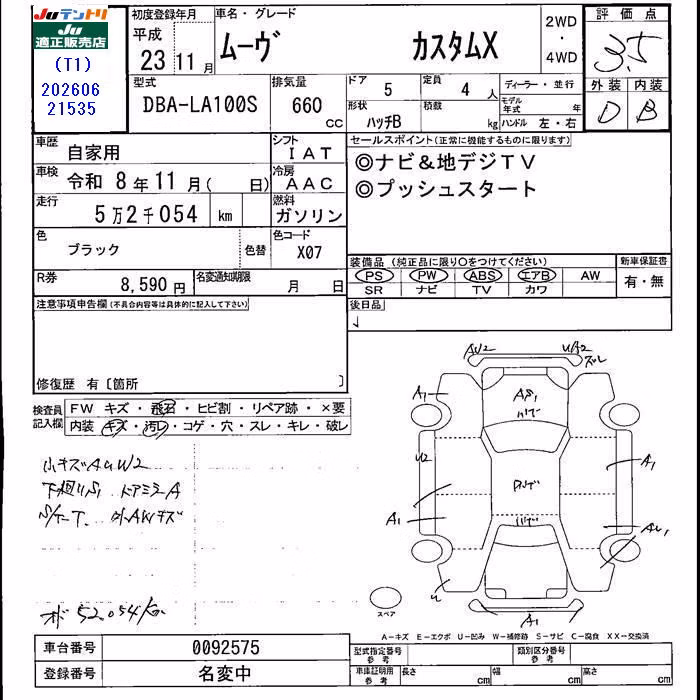 Juテントリ
Ju
適正販売店
(T1)
202606
21535
初度登録年月
平成
23 11月
車名・グレード
ムーヴ カスタムX
2WD
・
4WD
評価点
3.5
外装 内装
D B
型式
DBA-LA100S
排気量
660
CC
ドア 5
定員 4 人
形状 ハッチB
積数 kg
ディーラー・並行
モデル年式 年
ハンドル 左・右
車歴 自家用
シフト IAT
車検 令和 8年11月( 日)
冷房 AAC
走行 5万2千054 km
燃料 ガソリン
色 ブラック 色替
色コード X07
R券 8,590円
名変通知期限 月 日
セールスポイント(正常に機能するものに限ります)
◎ナビ&地デジTV
◎プッシュスタート
装備品(純正品に限り○をつけてください)
PS PW ABS エアB AW
SR ナビ TV カワ
新車保証書
有・無
後日品
注意事項申告欄(不具合内容等は具体的に記入して下さい)
修復歴 有〔箇所 〕
検査員記入欄
FW キズ・飛石・ヒビ割・リペア跡・×要
内装 キズ・汚レ・コゲ・穴・スレ・キレ・破レ
小キズAUW2
下廻りS1 ドアミラーA
S/T-T. 外AWキズ
オド 52054km
AW2
UA2
ズレ
A1
AS1
ハゲ
U2
A1
A1
ハゲ
AU1
U
A1
スペア
A―キズ E―エクボ U―凹み W―補修跡 S―サビ C―腐食 XX―交換済
車台番号 0092575
登録番号 名変中
型式指定番号 参考
類別区分番号 参考
車庫証明用 参考
長さ cm
幅 cm
高さ cm